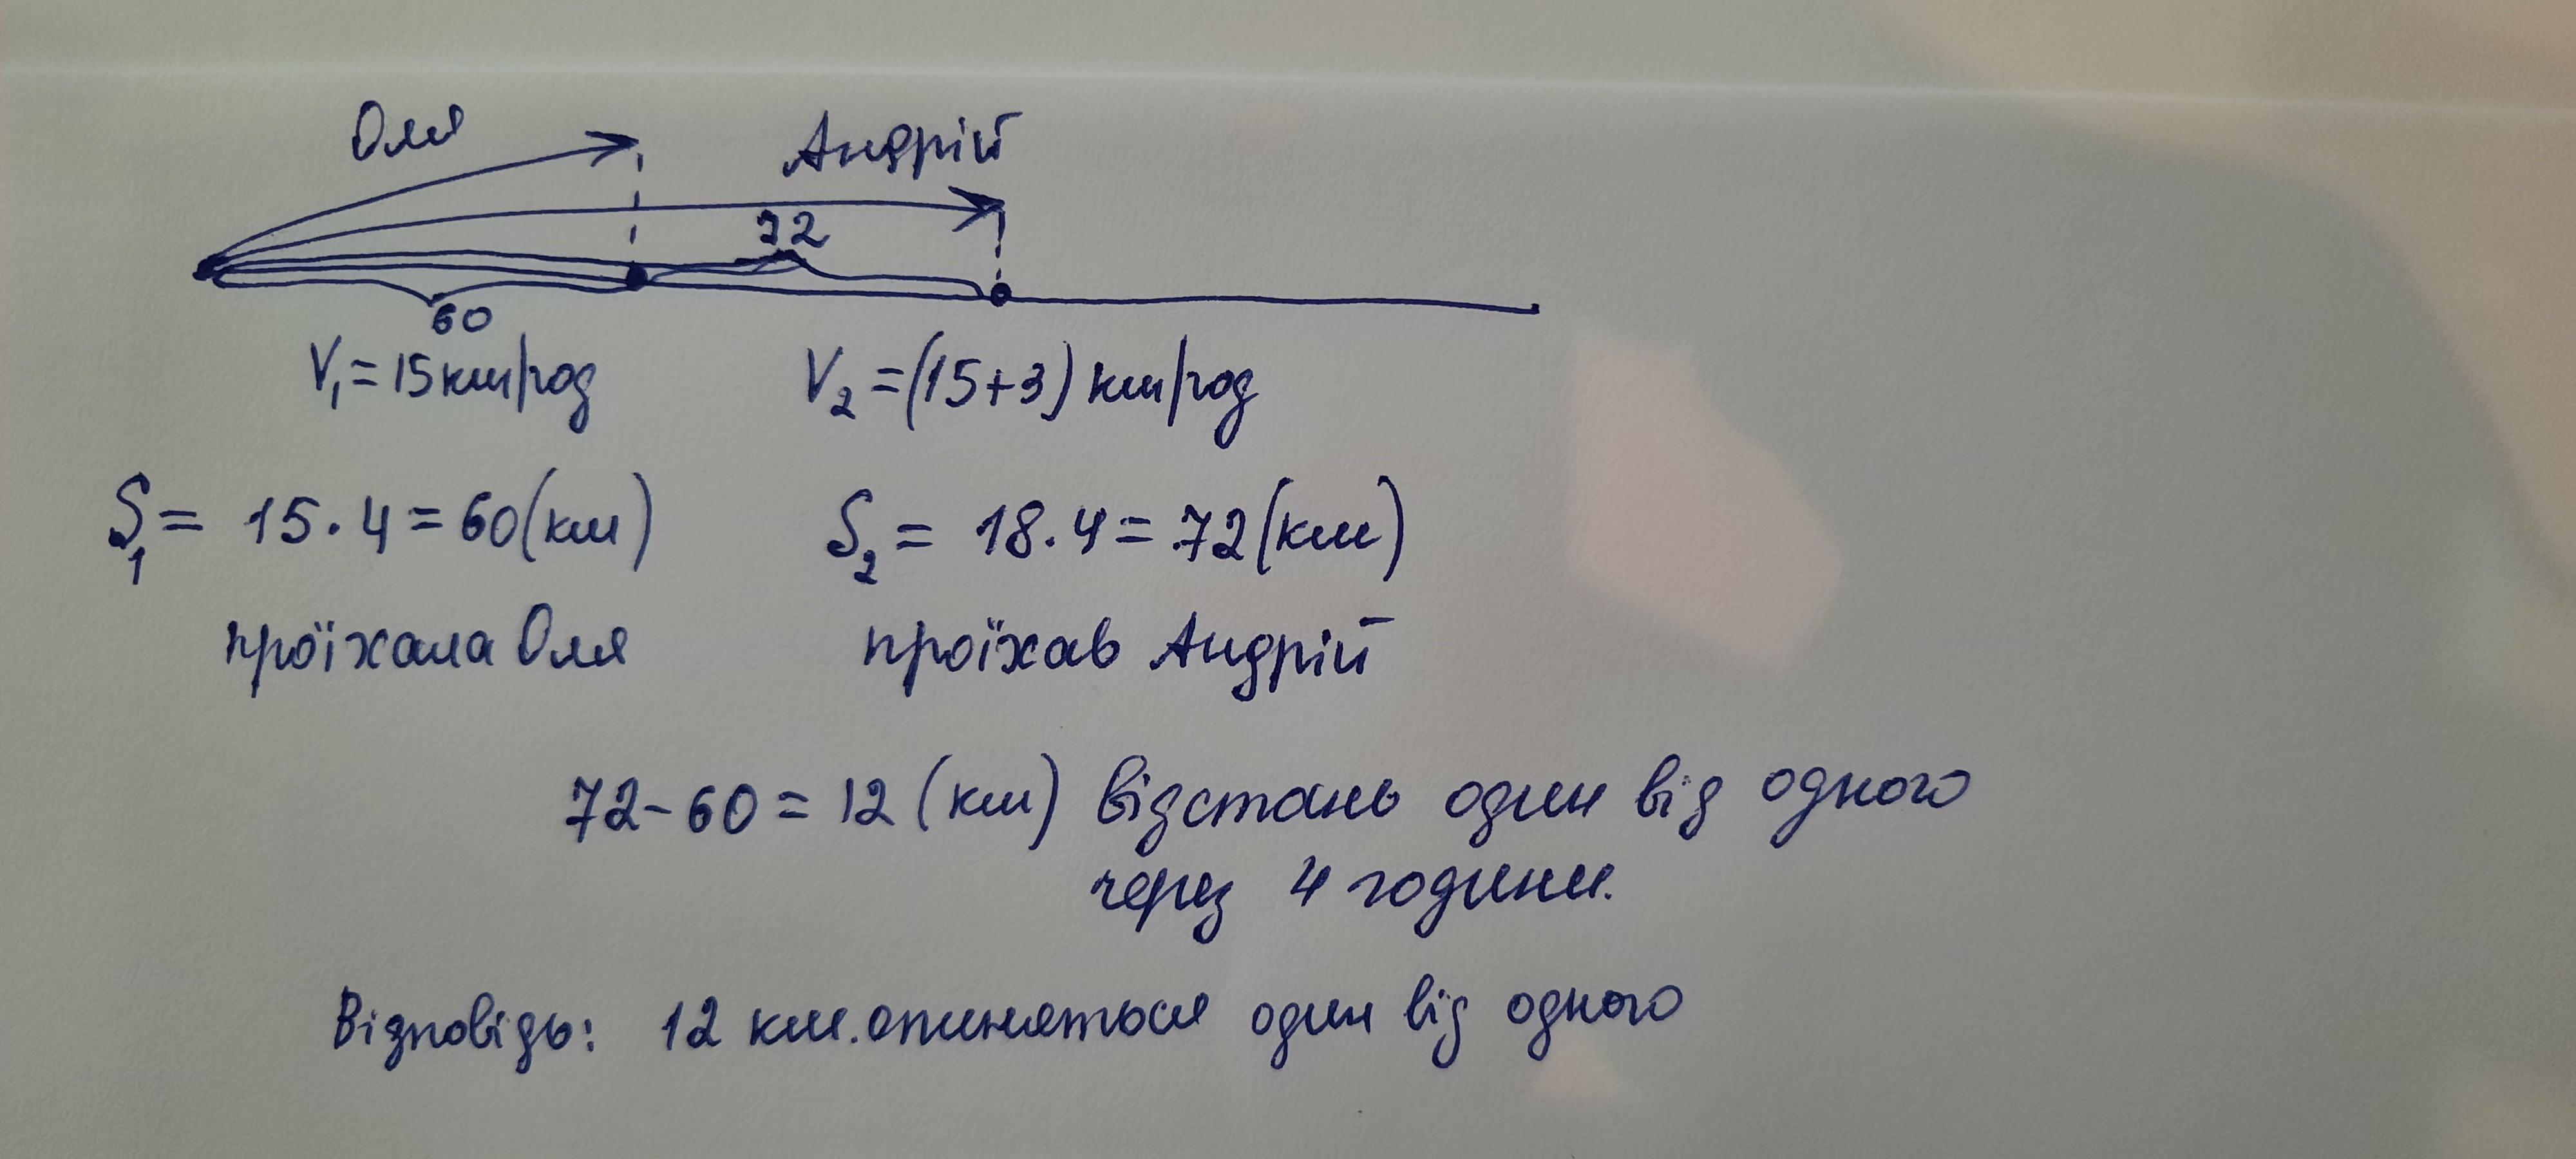 Оля
Андрій
72
60
V₁ = 15 км/год V₂ = (15+3) км/год
S₁ = 15 · 4 = 60 (км) S₂ = 18 · 4 = 72 (км)
проїхала Оля проїхав Андрій
72 - 60 = 12 (км) відстань один від одного
через 4 години.
Відповідь: 12 км. опиняться один від одного